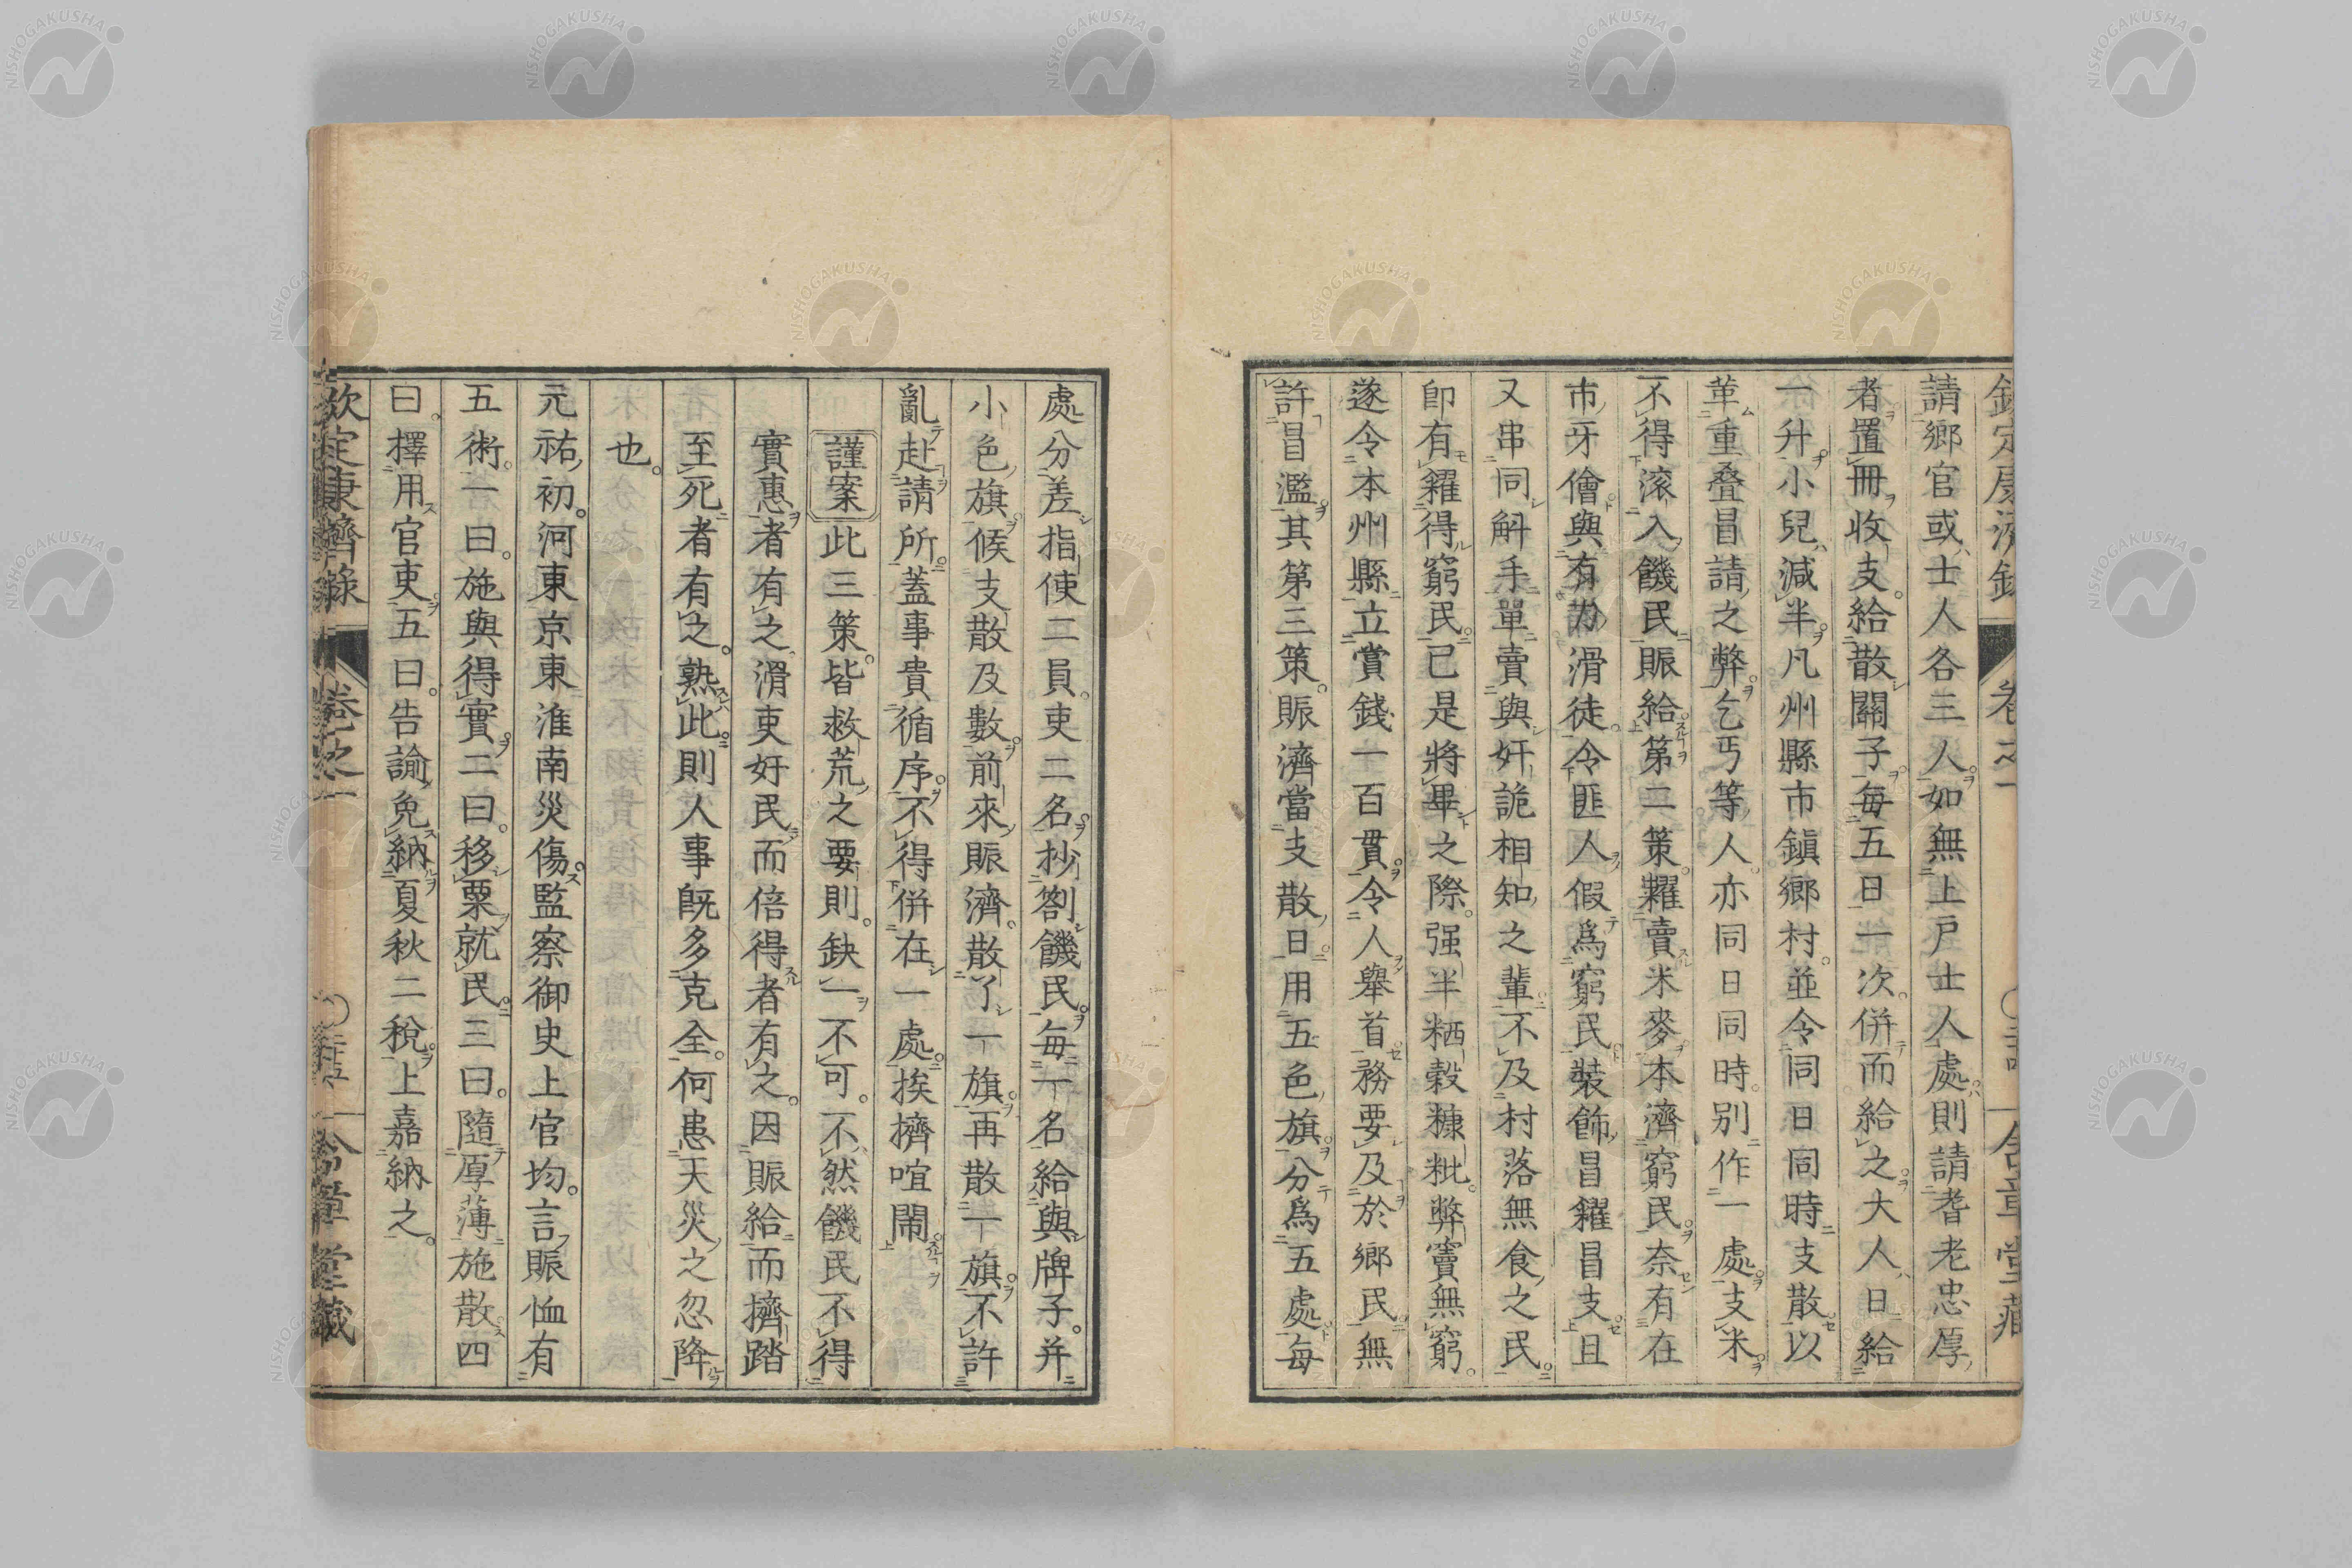 請鄉官或士人各三人如無上戸士人處則請耆老忠厚
者置冊收支給散關子每五日一次併而給之大人日給
一升小兒減半凡州縣市鎭鄉村並令同日同時支散以
革重疊冒請之弊乞丐等人亦同日同時別作一處支米
不得滚入饑民賑給第二策糶賣米麥本濟窮民奈有在
市牙儈與有力滑徒令匪人假爲窮民裝飾冒糴冒支且
又串同斛手單賣與奸詭相知之輩不及村落無食之民
卽有糴得窮民已是將畢之際强半粞穀糠粃弊竇無窮
遂令本州縣立賞錢一百貫令人舉首務要及於鄉民無
許冒濫其第三策賑濟當支散日用五色旗分爲五處每
處分差指使二員吏二名抄劄饑民每一名給與牌子并
小色旗候支散及數前來賑濟散了一旗再散一旗不許
亂赴請所蓋事貴循序不得併在一處挨擠喧鬧
謹案此三策皆救荒之要則缺一不可不然饑民不得
實惠者有之滑吏奸民而倍得者有之因賑給而擠踏
至死者有之熟此則人事旣多克全何患天災之忽降
也
元祐初河東京東淮南災傷監察御史上官均言賑恤有
五術一曰施與得實二曰移粟就民三曰隨厚薄施散四
曰擇用官吏五曰告諭免納夏秋二稅上嘉納之
欽定康濟錄 卷之一 含章堂藏
NISHOGAKUSHA